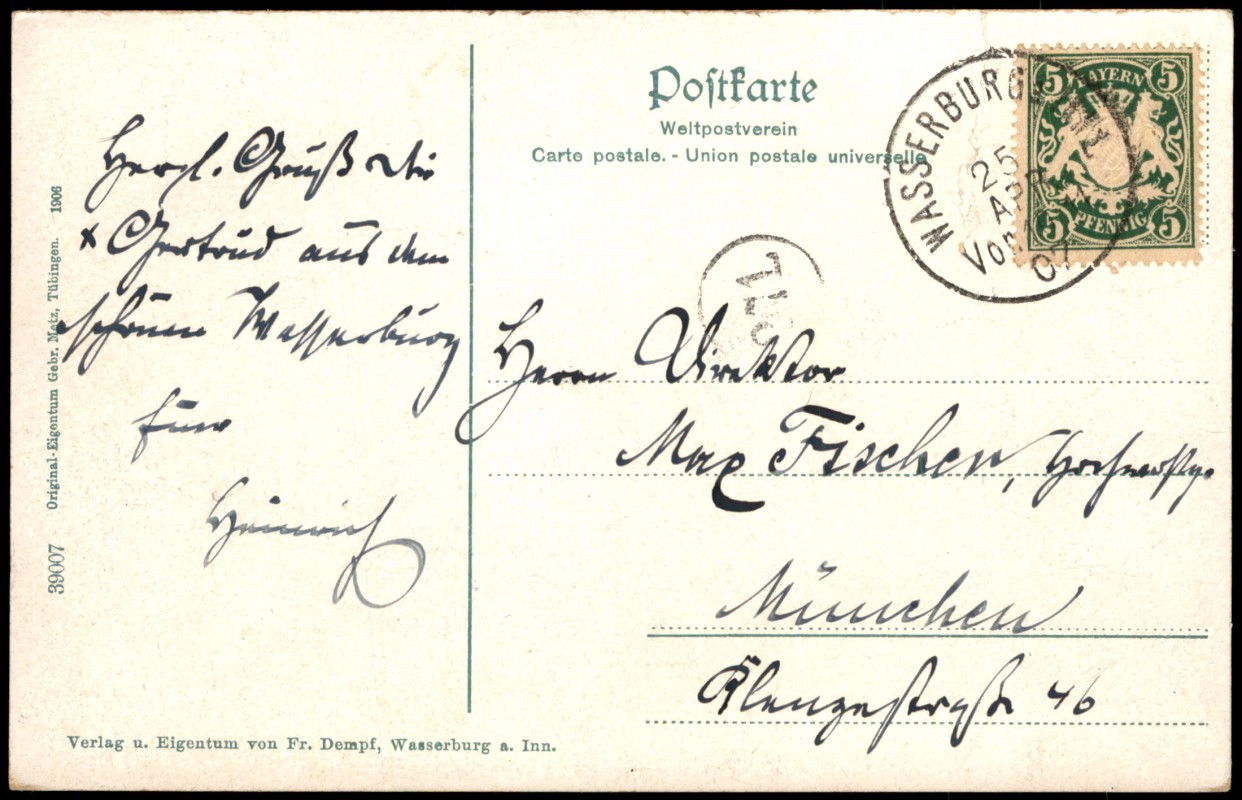 Postkarte
Weltpostverein
Carte postale. - Union postale universelle
BAYERN
5 5
5 PFENNIG 5
WASSERBURG
25
APR
Vorm
07
Herzl. Gruß Dir
+ Gertrud aus dem
schönen Wasserburg
Euer
Heinrich
Herrn Direktor
Max Fischer,
München
Klenzestraße 46
39007
Original-Eigentum Gebr. Metz, Tübingen. 1906
Verlag u. Eigentum von Fr. Dempf, Wasserburg a. Inn.